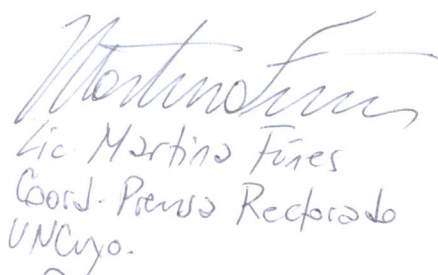 Martina Funes
Lic. Martina Funes
Coord. Prensa Rectorado
UNCuyo.